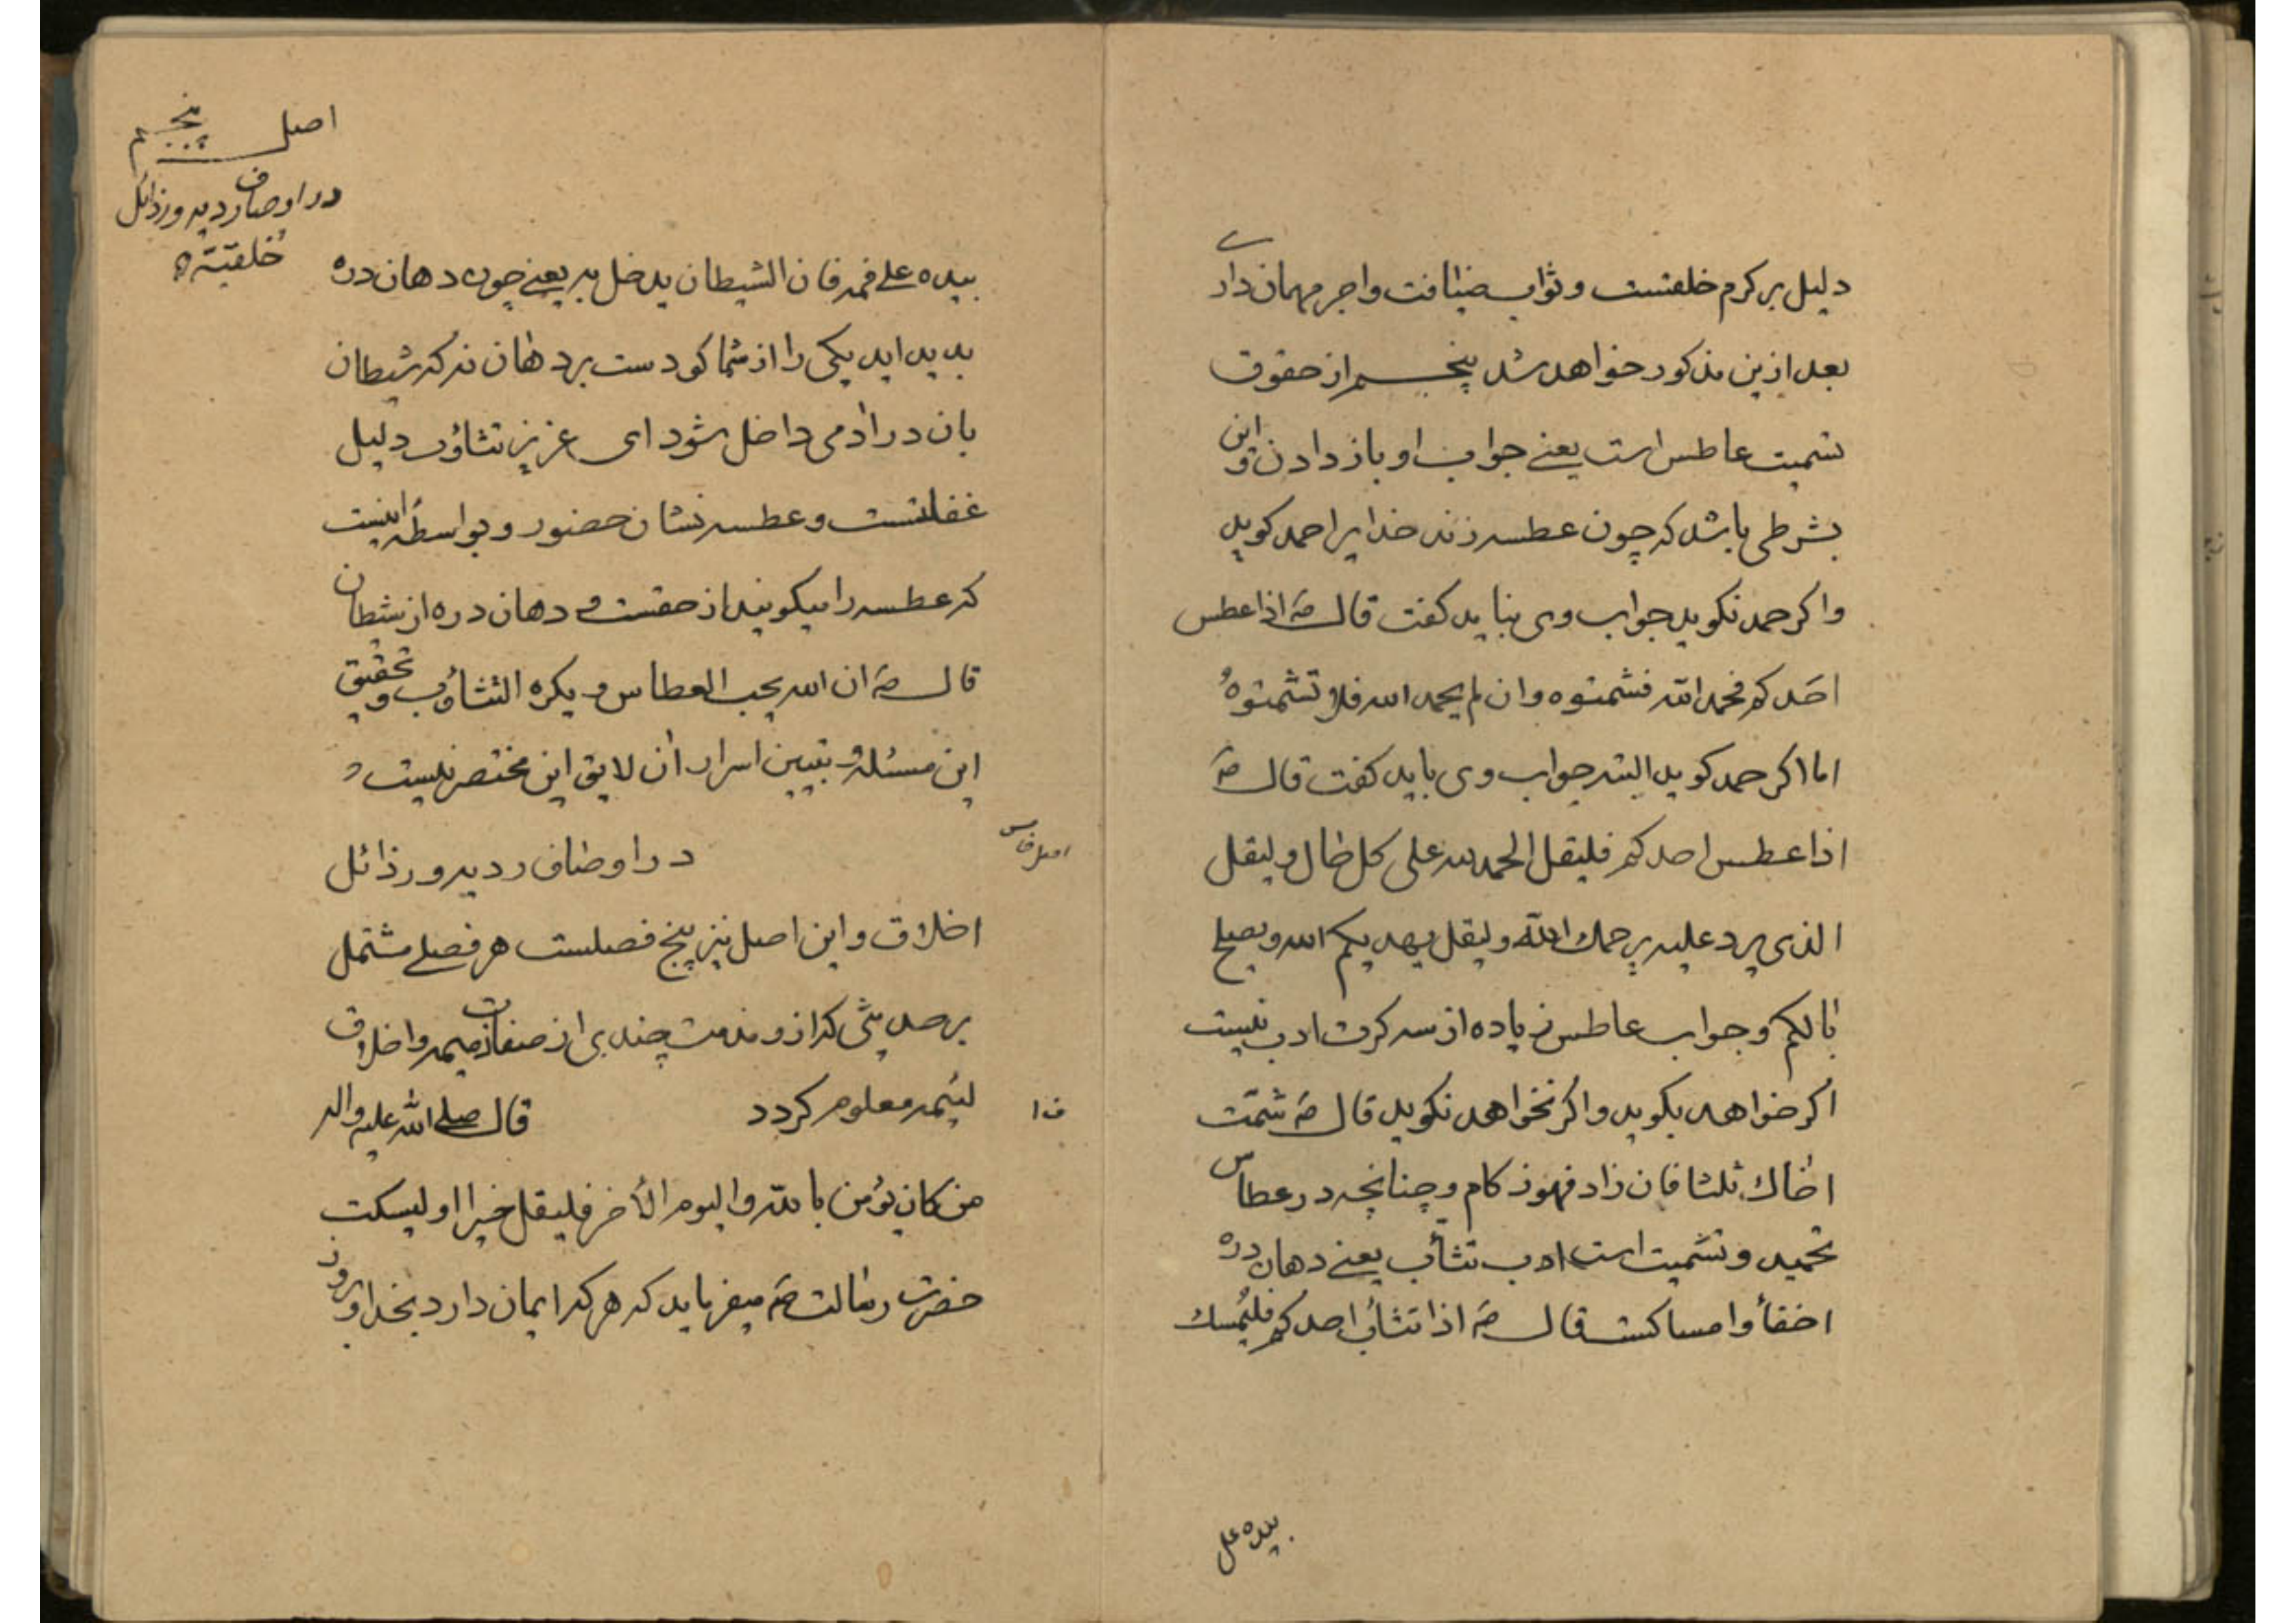 دلیل بر کرم خلقتست و ثواب ضیافت و اجر مهمان داری
بعد ازین مذکور خواهد شد پنجم از حقوق
تشمیت عاطس است یعنی جواب او باز دادن و این
بشرطی باشد که چون عطسه زند خدایرا حمد کوید
و اکر حمد نکوید جواب وی نباید کفت قال صَه اذا عطس
احَدکم فحمد اللّه فشمتوه و ان لم یحمد الله فلا تشمتوهُ
اما اکر حمد کوید البته جواب وی باید کفت قال صَه
اذا عطس احدکم فلیقل الحمد لله علی کل حال و لیقل
الذی یرد علیه یرحمك اللّه و لیقل یهدیکم الله و یصلح
بالکم و جواب عاطس زیاده از سه کرت ادب نیست
اکر خواهد بکوید و اکر نخواهد نکوید قال صَه شمّت
اخاك ثلثا فان زاد فهو زکام و چنانچه در عطاس
تحمید و تشمیت است ادب تثأب یعنی دهان دره
اخفأ و امساکست قال صَه اذا تثأب احدکم فلیُمسك
بیده عل
اصل پنجم
در اوصاف ردیه و رذائل
خُلقیّته
بیده علی فمه فان الشیطان یدخل به یعنی چون دهان دره
بدید اید یکی را از شما کو دست بر دهان نه که شیطان
بان در ادمی داخل شود ای عزیز تثاؤب دلیل
غفلتست و عطسه نشان حضور و بواسطهٔ اینست
که عطسه را میکویند از حقست و دهان دره از شیطان
قال صَه ان الله یحب العطاس و یکره التثاؤب و تحقیق
این مسئله و تبیین اسرار ان لایق این مختصر نیست
اصل خامس
در اوصاف ردیه و رذائل
اخلاق و این اصل نیز پنج فصلست هر فصلی مشتمل
بر حدیثی که ازو مذمت چندی از صفات ذمیمه و اخلاق
لئیمه معلوم کردد قال صلی اللّه علیه واله
من کان یؤمن باللّه و الیوم الأخر فلیقل خیرا او لیسکت
حضرت رسالت صَه میفرماید که هر که ایمان دارد بخدا و بروز